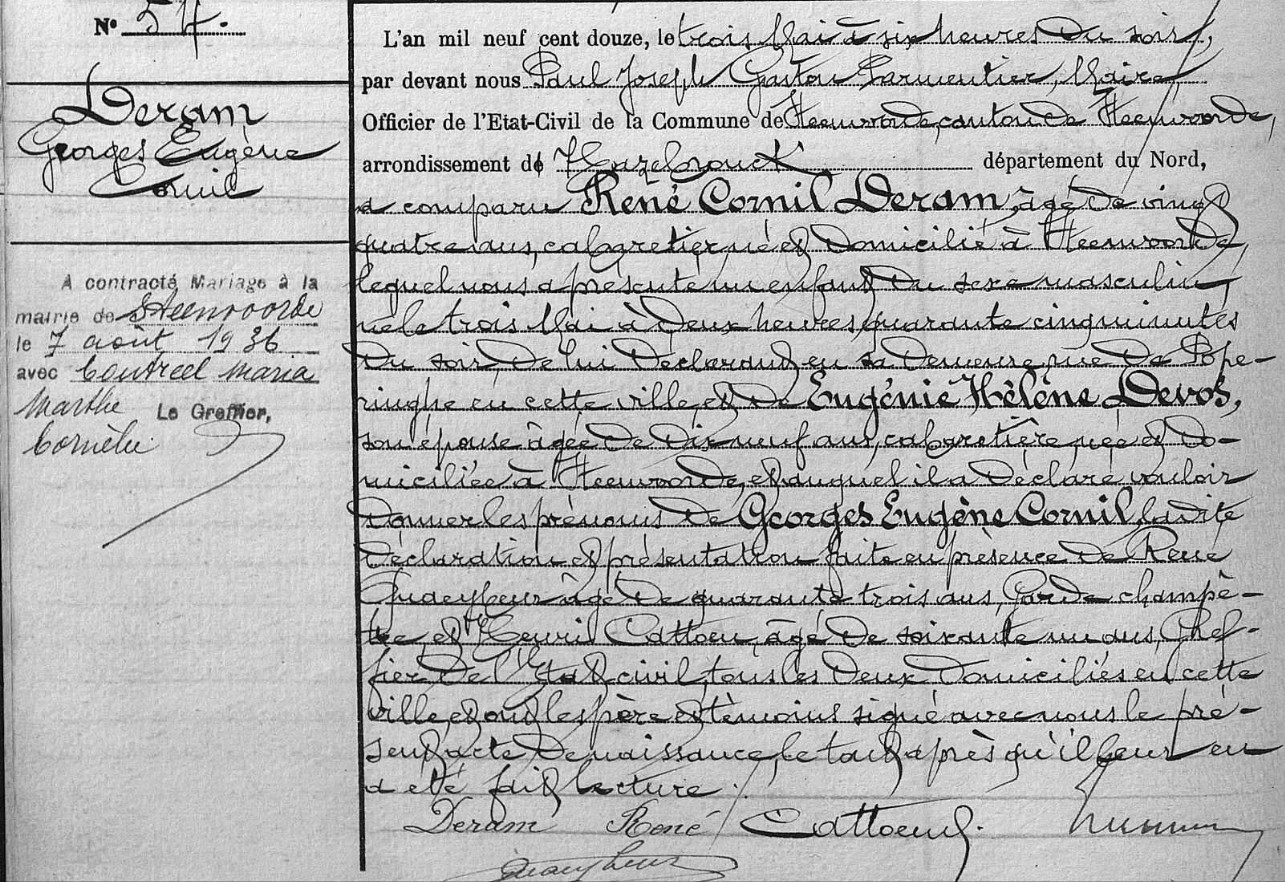 N° 54.
Deram
Georges Eugène
Cornil
A contracté Mariage à la
mairie de Steenvoorde
le 7 août 1936
avec Coutreel Maria
Marthe Le Greffier,
Cornélie
L'an mil neuf cent douze, le trois Mai à six heures du soir,
par devant nous Paul Joseph Gaston Parmentier, Maire,
Officier de l'Etat-Civil de la Commune de Steenvoorde, canton de Steenvoorde,
arrondissement de Hazebrouck département du Nord,
a comparu René Cornil Deram, âgé de vingt
quatre ans, cabaretier, né et domicilié à Steenvoorde,
lequel nous a présenté un enfant du sexe masculin,
né le trois Mai à deux heures quarante cinq minutes
du soir, de lui déclarant, en sa demeure, rue de Pope-
ringhe en cette ville, et de Eugénie Hélène Devos,
son épouse âgée de dix neuf ans, cabaretière, née et do-
miciliée à Steenvoorde, et auquel il a déclaré vouloir
donner les prénoms de Georges Eugène Cornil, la dite
déclaration et présentation faite en présence de René
âgé de quarante trois ans, Garde champê-
tre, et Henri Cattoen, âgé de soixante un ans, Gref-
fier de l'Etat civil, tous les deux domiciliés en cette
ville et ont les père et témoins signé avec nous le pré-
sent acte de naissance, le tout après qu'il leur en
a été fait lecture.
Deram René Cattoen H.